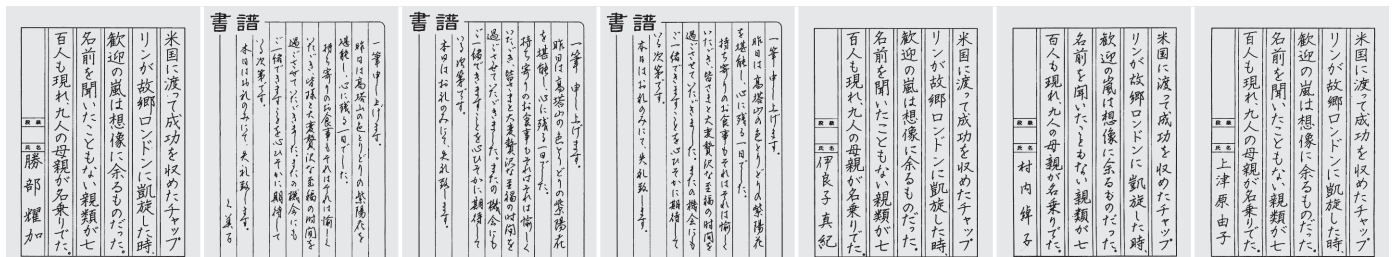 米国に渡って成功を収めたチャップ
リンが故郷ロンドンに凱旋した時、
歓迎の嵐は想像に余るものだった。
名前を聞いたこともない親類が七
百人も現れ、九人の母親が名乗りでた。
段級
氏名
勝部耀加
書譜
一筆申し上げます。
昨日は高塔山の色とりどりの紫陽花を
堪能し、心に残る一日でした。
持ち寄りのお食事もそれぞれ愉しく
いただき、皆様と大変贅沢な至福の時間を
過ごさせていただきました。またの機会にも
ご一緒できますことを心ひそかに期待して
いる次第です。
本日はお礼のみにて、失礼致します。
書譜
一筆申し上げます。
昨日は高塔山の色とりどりの紫陽花
を堪能し、心に残る一日でした。
持ち寄りのお食事もそれぞれ愉しく
いただき、皆さまと大変贅沢な至福の時間を
過ごさせていただきました。またの機会にも
ご一緒できますことを心ひそかに期待して
いる次第です。
本日はお礼のみにて、失礼致します。
書譜
一筆申し上げます。
昨日は高塔山の色とりどりの紫陽花
を堪能し、心に残る一日でした。
持ち寄りのお食事もそれぞれ愉しく
いただき、皆さまと大変贅沢な至福の時間を
過ごさせていただきました。またの機会にも
ご一緒できますことを心ひそかに期待して
いる次第です。
本日はお礼のみにて、失礼致します。
米国に渡って成功を収めたチャップ
リンが故郷ロンドンに凱旋した時、
歓迎の嵐は想像に余るものだった。
名前を聞いたこともない親類が七
百人も現れ、九人の母親が名乗りでた。
段級
氏名
伊良子真紀
米国に渡って成功を収めたチャップ
リンが故郷ロンドンに凱旋した時、
歓迎の嵐は想像に余るものだった。
名前を聞いたこともない親類が七
百人も現れ、九人の母親が名乗りでた。
段級
氏名
村内 子
米国に渡って成功を収めたチャップ
リンが故郷ロンドンに凱旋した時、
歓迎の嵐は想像に余るものだった。
名前を聞いたこともない親類が七
百人も現れ、九人の母親が名乗りでた。
段級
氏名
上津原由子